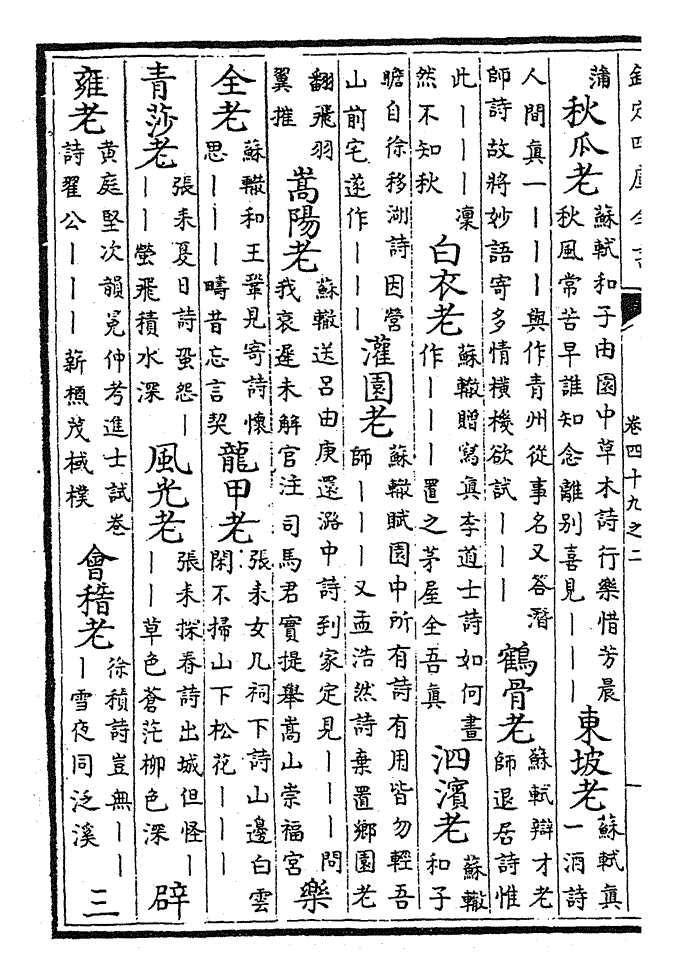 欽定四庫全書
卷四十九之二
蒲
秋瓜老
蘇軾和子由園中草木詩行樂惜芳晨
秋風常苦早誰知念離別喜見丨丨丨
東坡老
蘇軾真
一酒詩
人間真一丨丨丨與作青州從事名又答潛
師詩故將妙語寄多情橫機欲試丨丨丨
鶴骨老
蘇軾辯才老
師退居詩惟
此丨丨丨凜
然不知秋
白衣老
蘇轍贈寫真李道士詩如何畫
作丨丨丨置之茅屋全吾真
泗濱老
蘇轍
和子
瞻自徐移湖詩因營
山前宅遂作丨丨丨
灌園老
蘇轍賦園中所有詩有用皆勿輕吾
師丨丨丨又孟浩然詩棄置鄉園老
翻飛羽
翼摧
嵩陽老
蘇轍送呂由庚還潞中詩到家定見丨丨丨問
我衰遲未解官注司馬君實提舉嵩山崇福宮
樂
全老
蘇轍和王鞏見寄詩懷
思丨丨疇昔忘言契
龍甲老
張耒女几祠下詩山邊白雲
閑不掃山下松花丨丨丨
青莎老
張耒夏日詩蛩怨丨
丨丨螢飛積水深
風光老
張耒探春詩出城但怪丨
丨丨草色蒼茫柳色深
辟
雍老
黄庭堅次韻冕仲考進士試卷
詩翟公丨丨丨薪槱茂棫樸
會稽老
徐積詩豈無丨丨
丨雪夜同泛溪
三